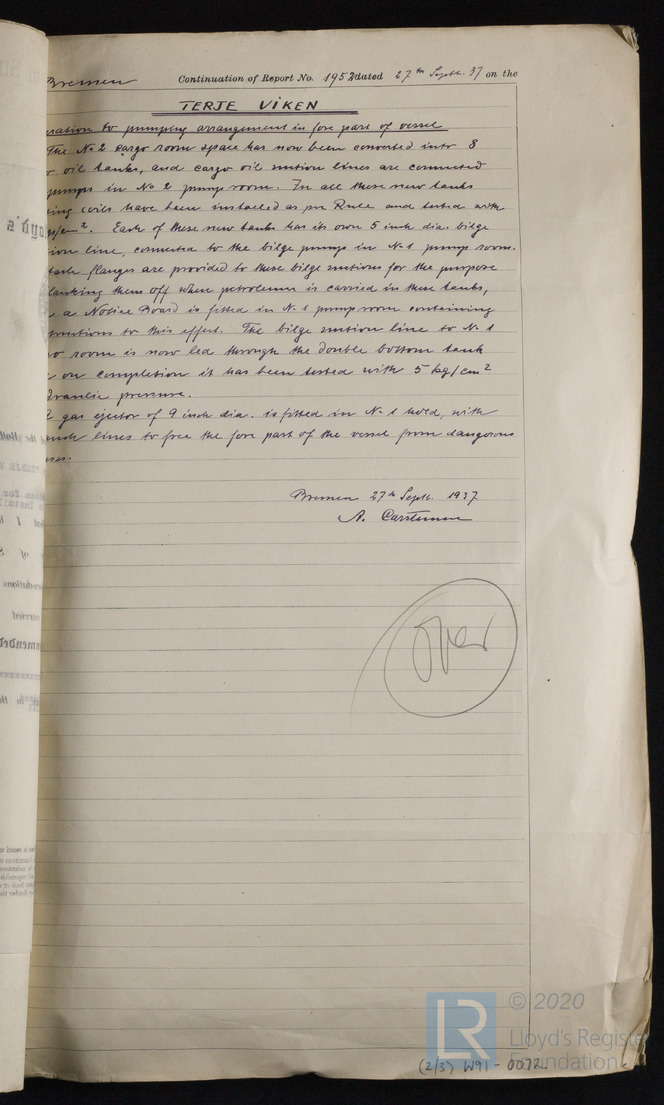 Bremen Continuation of Report No. 1952 dated 27th Septr. 37 on the
TERJE VIKEN
ration to pumping arrangement in fore part of vessel
The No 2 cargo room space has now been converted into 8
oil tanks, and cargo oil suction lines are connected
pumps in No 2 pump room. In all these new tanks
ing coils have been installed as per Rule and tested with
kg/cm². Each of these new tanks has its own 5 inch dia. bilge
ion line, connected to the bilge pumps in No 1 pump room.
flanges are provided to these bilge suctions for the purpose
lanking them off when petroleum is carried in these tanks,
a Notice Board is fitted in No 1 pump room containing
tructions to this effect. The bilge suction line to No 1
o room is now led through the double bottom tank
on completion it has been tested with 5 kg/cm²
draulic pressure.
gas ejector of 9 inch dia. is fitted in No 1 hold, with
lines to free the fore part of the vessel from dangerous
ses.
Bremen 27th Septr. 1937
A. Carstensen
Over
LR © 2020
Lloyd's Register
Foundation
(2/3) W91-0072